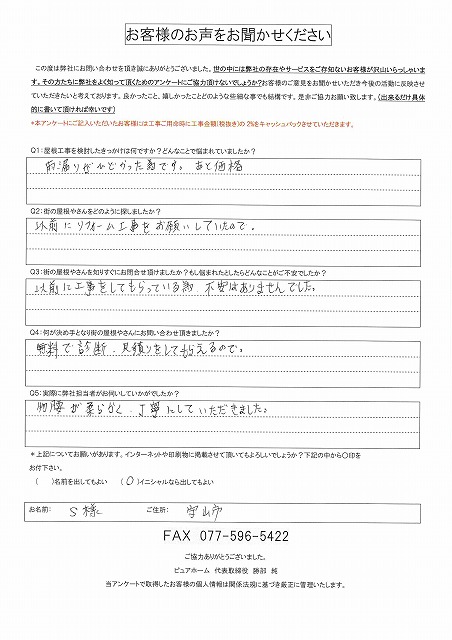 お客様のお声をお聞かせください
この度は弊社にお問い合わせを頂き誠にありがとうございました。世の中には弊社の存在やサービスをご存知ないお客様が沢山いらっしゃいま
す。その方たちに弊社をよく知って頂くためのアンケートにご協力頂けないでしょうか?お客様のご意見をお聞かせいただき今後の活動に反映させ
ていただきたいと考えております。良かったこと、嬉しかったことどのような些細な事でも結構です。是非ご協力お願い致します。(出来るだけ具体
的に書いて頂ければ幸いです)
*本アンケートにご記入いただいたお客様には工事ご用命時に工事金額(税抜き)の2%をキャッシュバックさせていただきます。
Q1:屋根工事を検討したきっかけは何ですか?どんなことで悩まれていましたか?
雨漏りがひどかった為です。あと価格
Q2:街の屋根やさんをどのように探しましたか?
以前にリフォーム工事をお願いしていたので。
Q3:街の屋根やさんを知りすぐにお問合せ頂けましたか?もし悩まれたとしたらどんなことがご不安でしたか?
以前に工事をしてもらっている為 不安はありませんでした。
Q4:何が決め手となり街の屋根やさんにお問い合わせ頂きましたか?
無料で診断、見積りをしてもらえるので。
Q5:実際に弊社担当者がお伺いしていかがでしたか?
物腰が柔らかく、丁寧にしていただきました。
*上記についてお願いがあります。インターネットや印刷物に掲載させて頂いてもよろしいでしょうか?下記の中から〇印を
お付下さい。
( )名前を出してもよい (O)イニシャルなら出してもよい
お名前: S様 ご住所: 守山市
FAX 077-596-5422
ご協力ありがとうございました。
ピュアホーム 代表取締役 勝部 純
当アンケートで取得したお客様の個人情報は関係法規に基づき厳正に管理いたします。